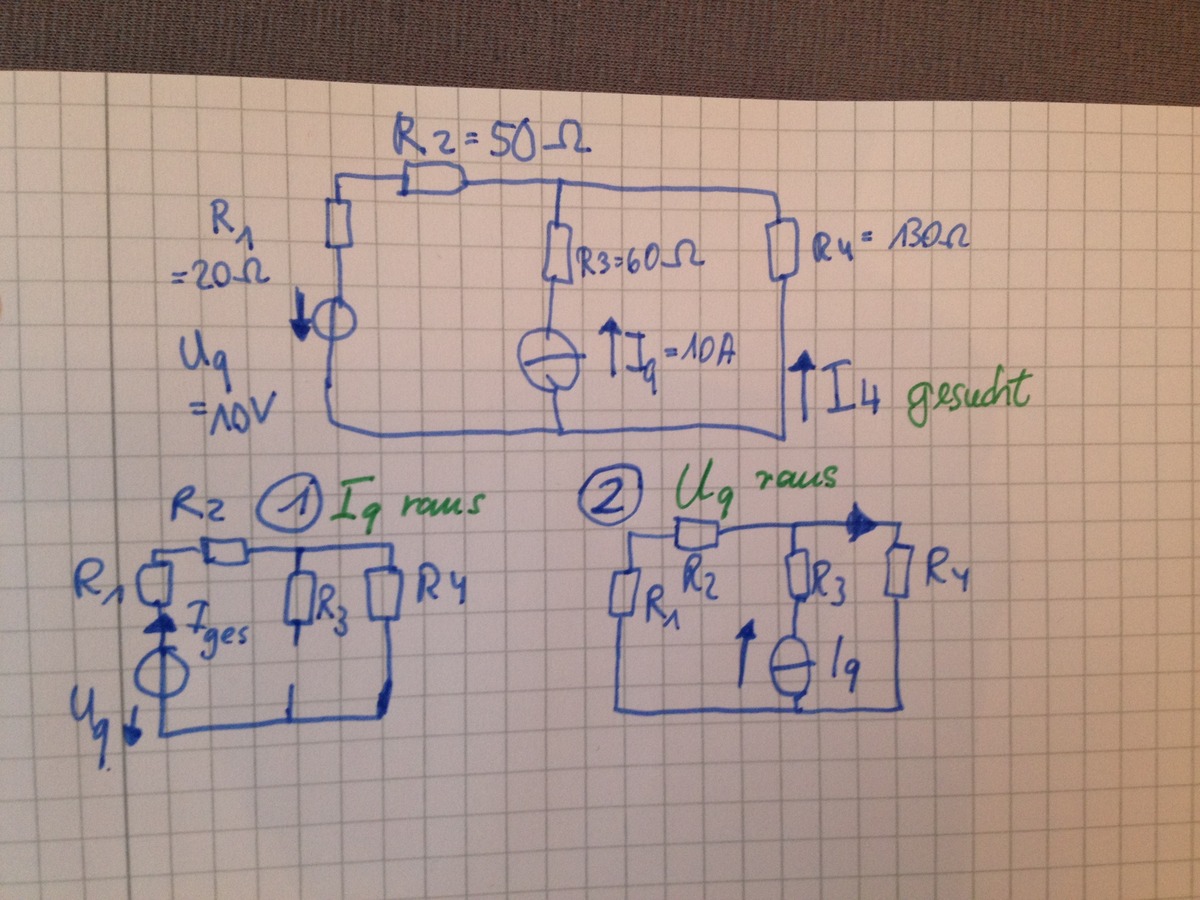 R2 = 50 Ω
R1
= 20 Ω
R3 = 60 Ω
R4 = 130 Ω
Uq
= 10V
Iq = 10A
I4 gesucht
R2
1 Iq raus
2 Uq raus
R1
Iges
R3
R4
Uq
R2
R1
R3
R4
Iq